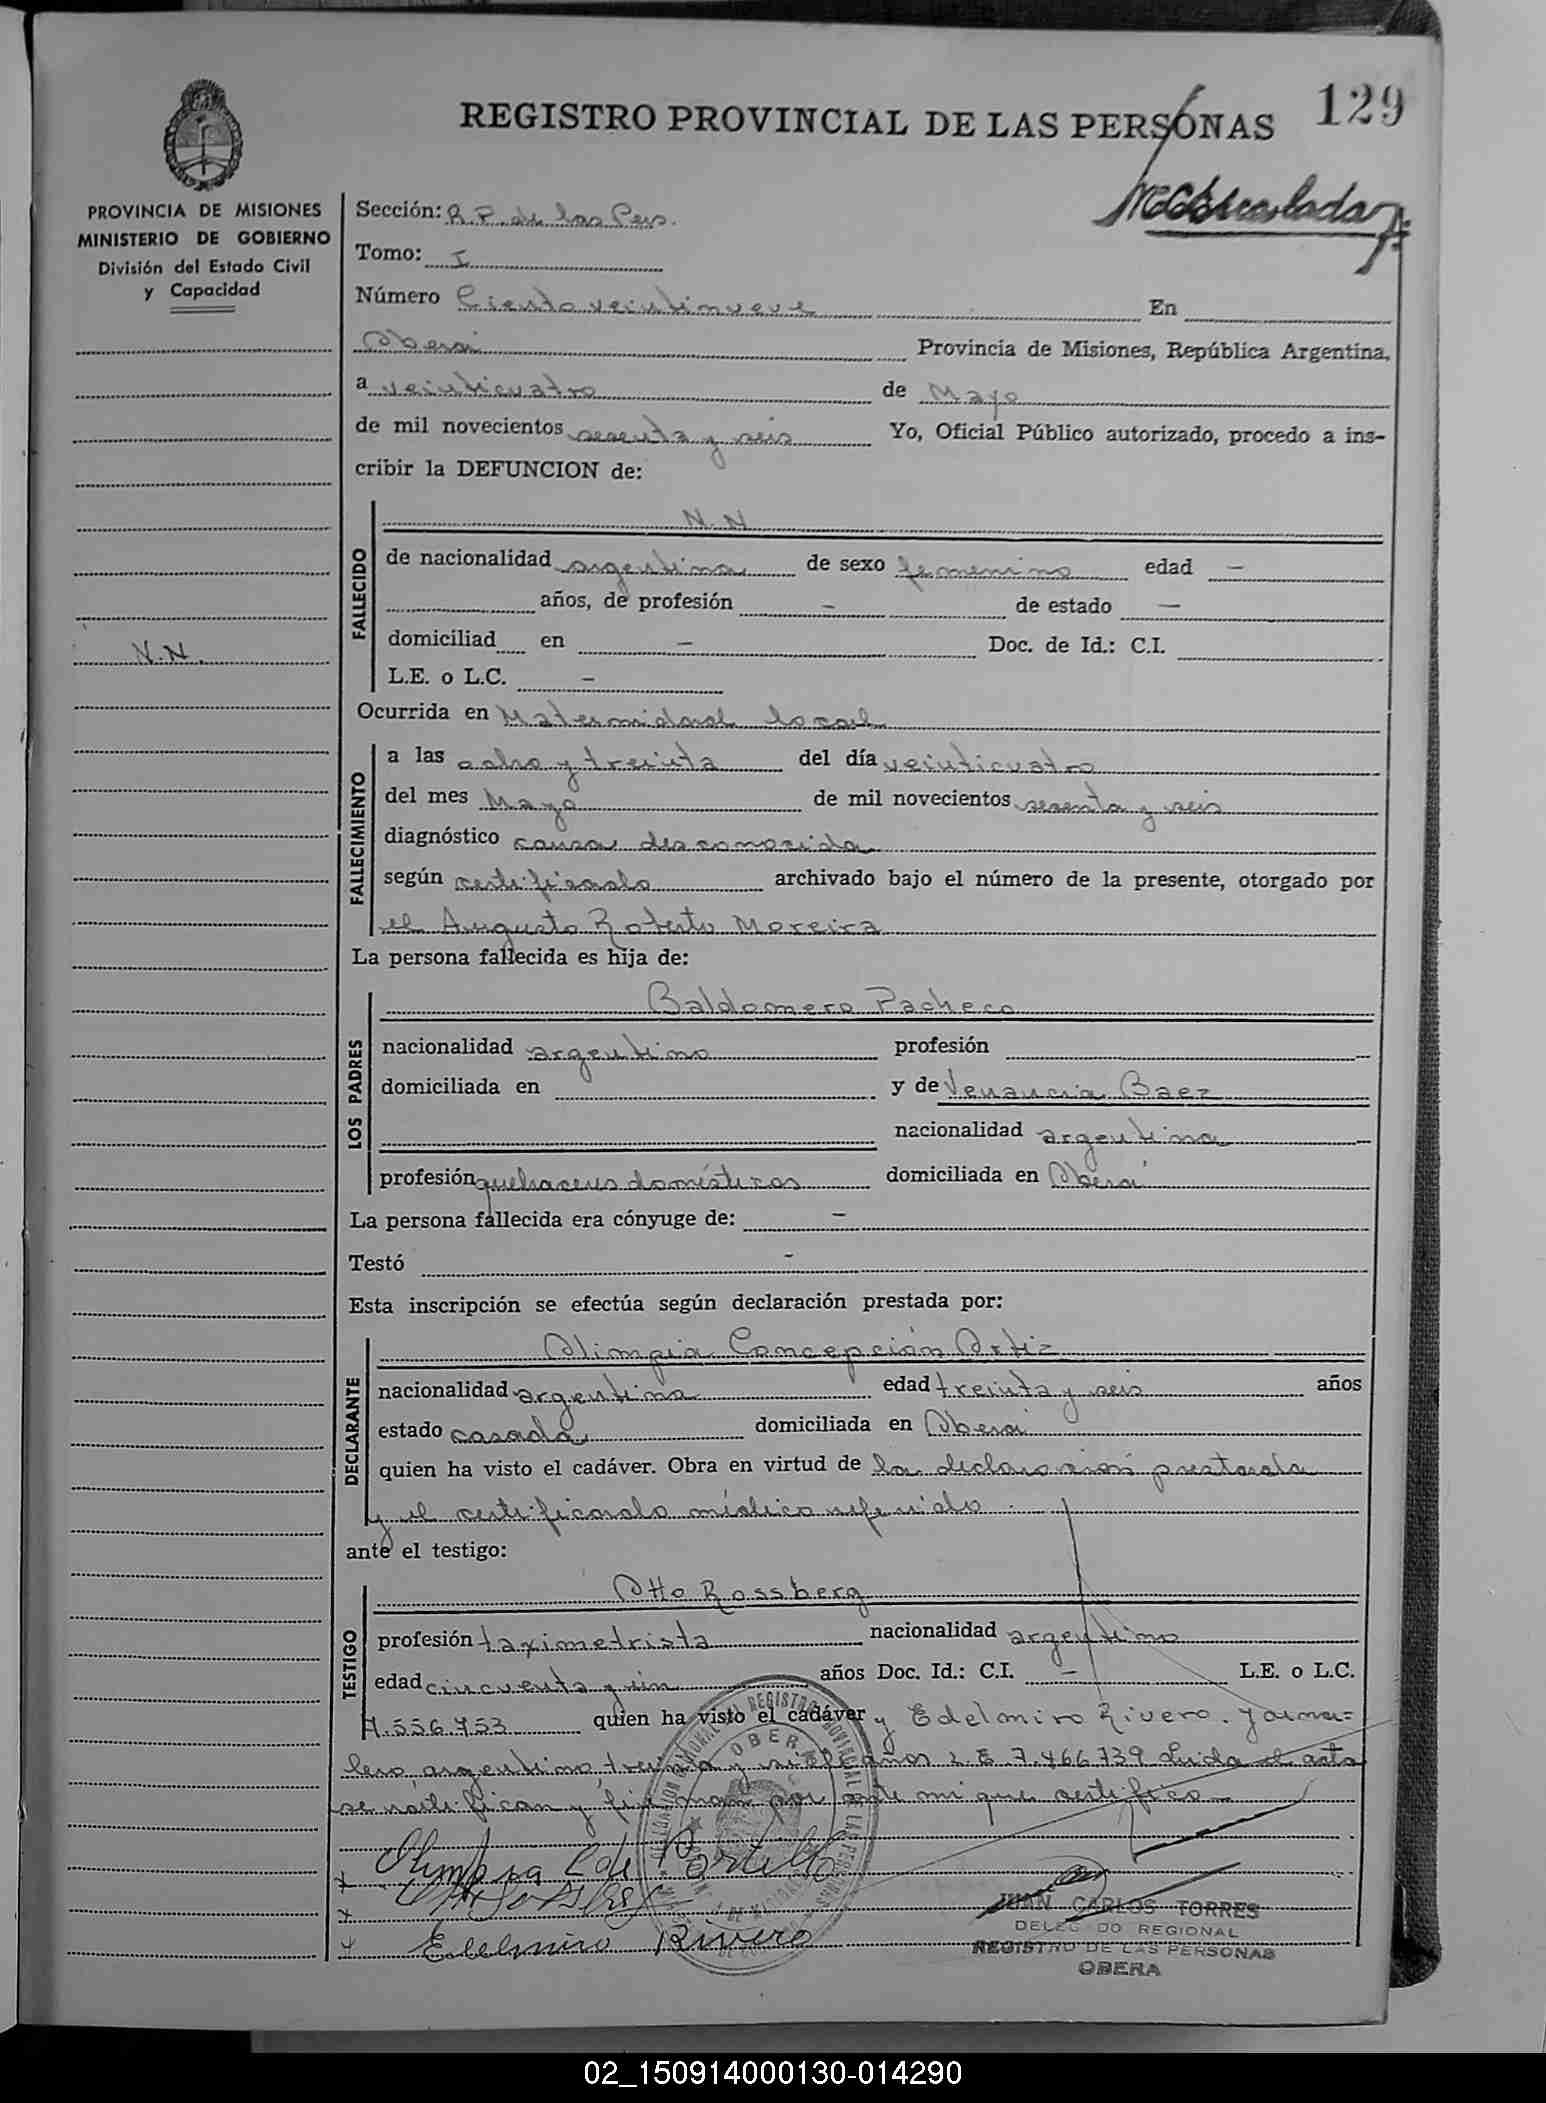 REGISTRO PROVINCIAL DE LAS PERSONAS 129
PROVINCIA DE MISIONES
MINISTERIO DE GOBIERNO
División del Estado Civil
y Capacidad
N.N.
Sección: R.P. de las Pers.
Tomo: I
Número Ciento veintinueve En
Oberá Provincia de Misiones, República Argentina,
a veinticuatro de Mayo
de mil novecientos sesenta y seis Yo, Oficial Público autorizado, procedo a ins-
cribir la DEFUNCION de:
FALLECIDO
N.N
de nacionalidad argentina de sexo femenino edad —
años, de profesión — de estado —
domiciliad en — Doc. de Id.: C.I.
L.E. o L.C. —
Ocurrida en Maternidad local
FALLECIMIENTO
a las ocho y treinta del día veinticuatro
del mes Mayo de mil novecientos sesenta y seis
diagnóstico causa desconocida
según certificado archivado bajo el número de la presente, otorgado por
el Augusto Roberto Moreira
La persona fallecida es hija de:
LOS PADRES
Baldomero Pacheco
nacionalidad argentino profesión
domiciliada en y de Venancia Baez
nacionalidad argentina
profesión quehaceres domésticos domiciliada en Oberá
La persona fallecida era cónyuge de: —
Testó -
Esta inscripción se efectúa según declaración prestada por:
DECLARANTE
Olimpia Concepción Ortiz
nacionalidad argentina edad treinta y seis años
estado casada domiciliada en Oberá
quien ha visto el cadáver. Obra en virtud de la declaración prestada
y el certificado médico referido.
ante el testigo:
TESTIGO
Otto Rossberg
profesión taximetrista nacionalidad argentino
edad cincuenta y años Doc. Id.: C.I. — L.E. o L.C.
7.556.753 quien ha visto el cadáver y Edelmiro Rivero. jorna=
lero, argentino, treinta y siete años L.E 7.466.739 Leida el acta
se ratifican y firman por ante mi que certifico—
Olimpia C de Portillo
Edelmiro Rivero
JUAN CARLOS TORRES
DELEGADO REGIONAL
REGISTRO DE LAS PERSONAS
OBERA
02_150914000130-014290